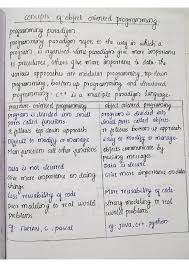 concepts of object oriented programming
programming paradigm
programming paradigm refers to the way in which a
program is organised. Some paradigm give more importance
to procedures, others give more importance to data. The
various approaches are modular programming, top down
programming, bottom up programming and structured
programming. C++ is a multiple paradigm language.
procedure oriented programming
program is divided into small
parts called functions
it follows top down approach
Difficult to modify or manage
Main function call other functions
Data is not secured
Give more importance on doing
things
Less reusability of code
Poor modeling to real world
problems
Eg: Fortran, C, pascal
object oriented programming
program is divided into
small parts called objects
it follows bottom up approach
Easy to modify or manage
Objects communicate by
passing messages
Data is secured
Give more importance
More reusability of code
Strong modeling to real
world problems
eg: java, C++, python